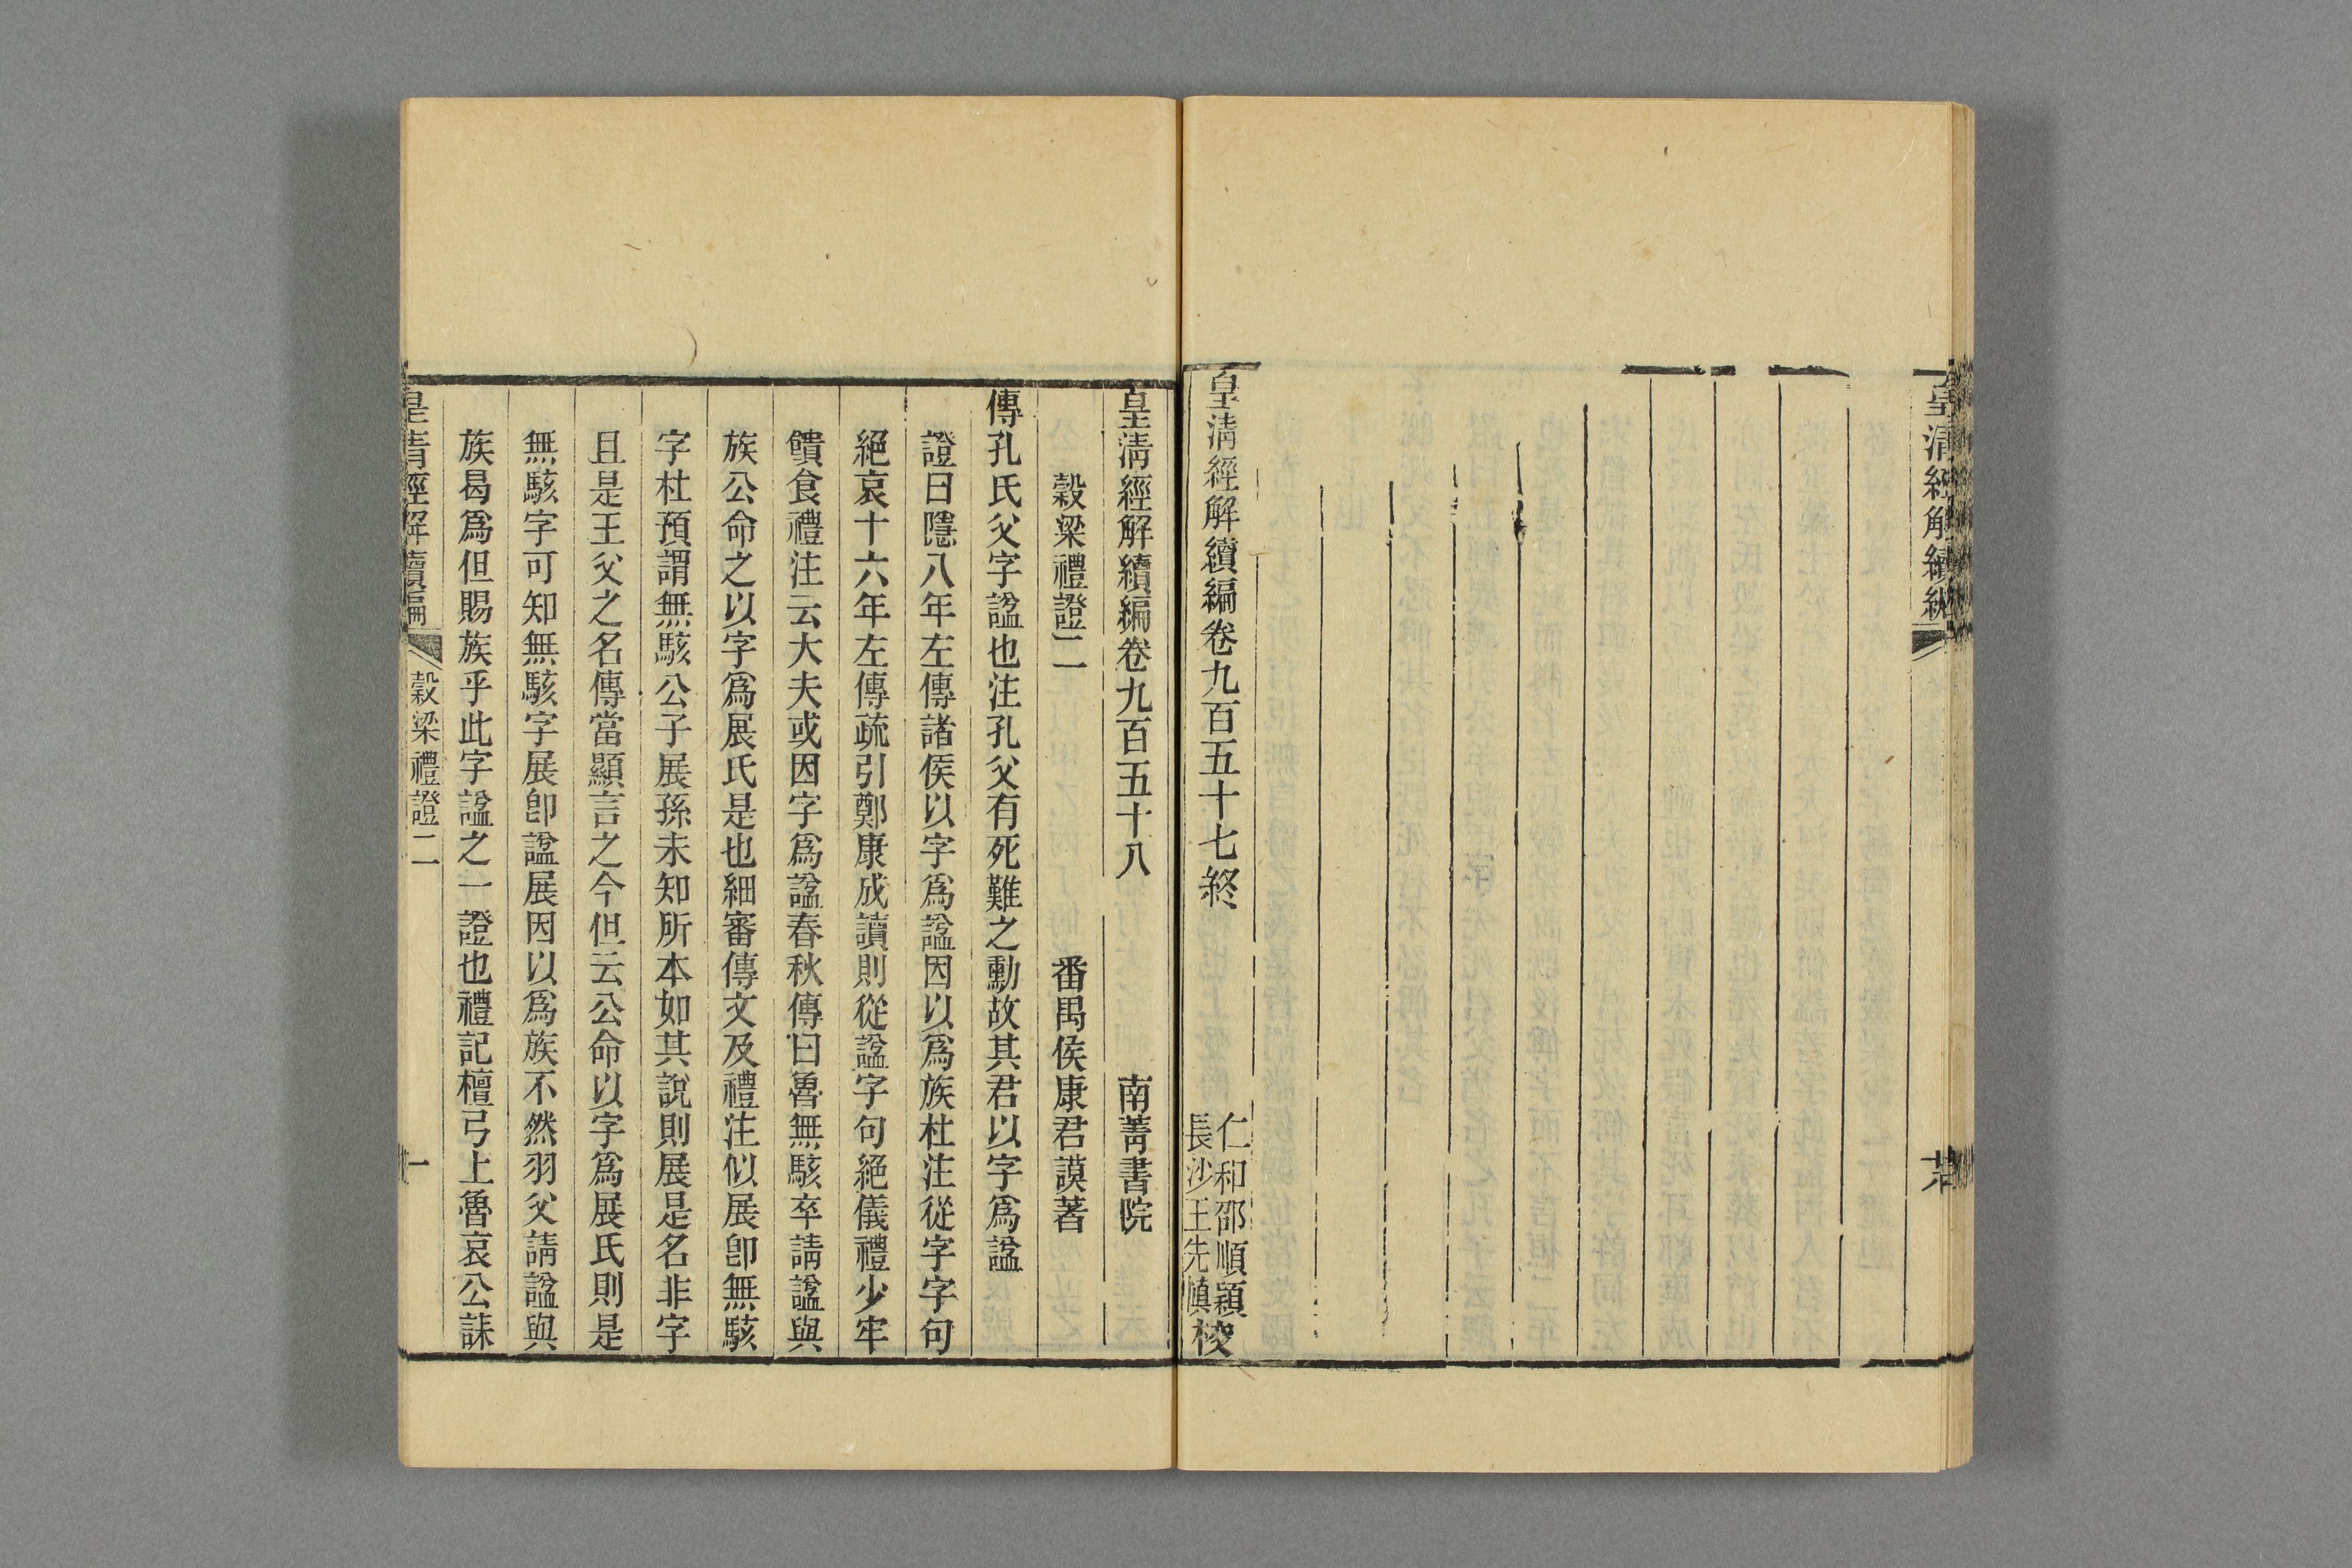 皇清經解續編
皇清經解續編卷九百五十七終
仁和邵順潁
長沙王先慎
校
皇清經解續編卷九百五十八
南菁書院
穀梁禮證二
番禺侯康君謨著
傳孔氏父字諡也注孔父有死難之勳故其君以字爲諡
證曰隱八年左傳諸侯以字爲諡因以爲族杜注從字字句
絕哀十六年左傳疏引鄭康成讀則從諡字句絕儀禮少牢
饋食禮注云大夫或因字爲諡春秋傳曰魯無駭卒請諡與
族公命之以字爲展氏是也細審傳文及禮注似展卽無駭
字杜預謂無駭公子展孫未知所本如其說則展是名非字
且是王父之名傳當顯言之今但云公命以字爲展氏則是
無駭字可知無駭字展卽諡展因以爲族不然羽父請諡與
族曷爲但賜族乎此字諡之一證也禮記檀弓上魯哀公誄
皇清經解續編
穀梁禮證二
一